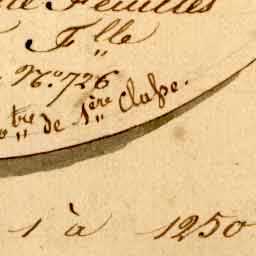 Feuilles
F.lle
N.o 726
de 1.ère Classe.
1 à 1250